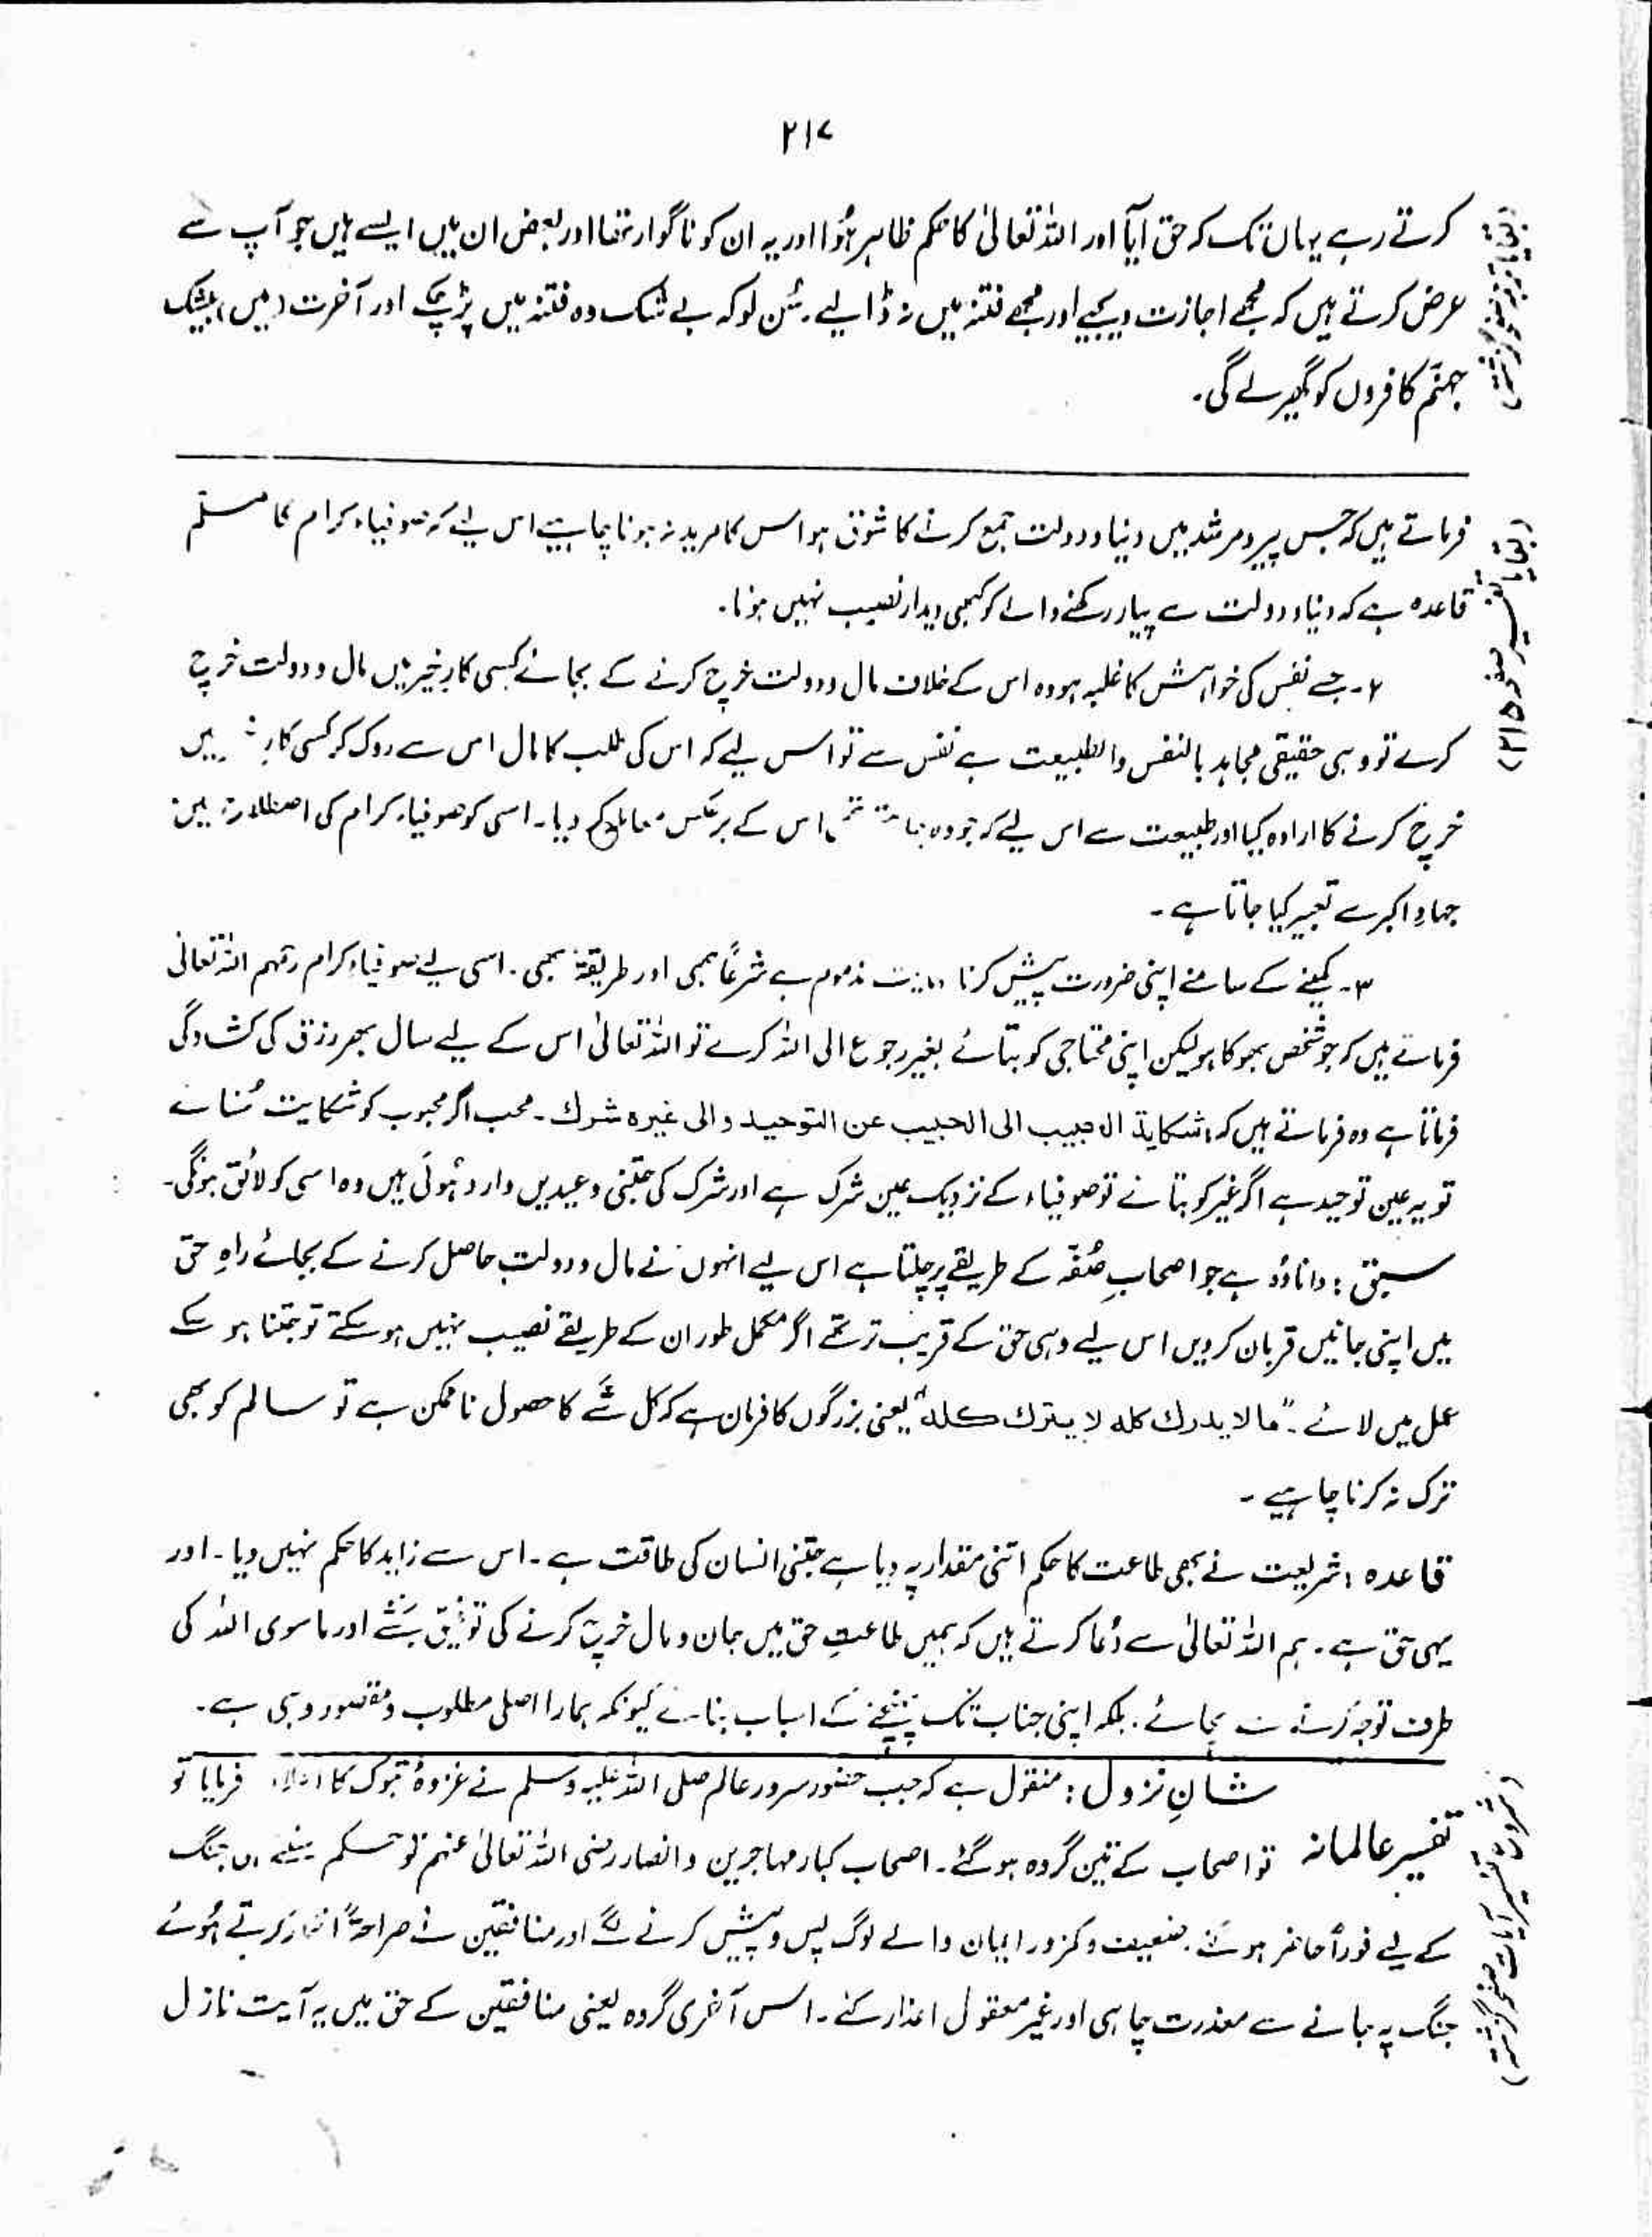 ۲۱۷
(بقیہ ترجمہ صفحہ گزشتہ)
کرتے رہے یہاں تک کہ حق آیا اور اللہ تعالیٰ کا حکم ظاہر ہُوا اور یہ ان کو ناگوار تھا اور بعض ان میں ایسے ہیں جو آپ سے
عرض کرتے ہیں کہ مجھے اجازت دیجیے اور مجھے فتنہ میں نہ ڈالیے۔ سُن لو کہ بے شک وہ فتنہ میں پڑ چکے اور آخرت (میں) بیشک
جہنّم کافروں کو گھیرلے گی۔
(بقایا تفسیر صفحہ ۲۱۵)
فرماتے ہیں کہ جس پیر و مرشد میں دنیا و دولت جمع کرنے کا شوق ہو اس کا مرید نہ ہونا چاہیے اس لیے کہ صوفیاء کرام کا مسلم
قاعدہ ہے کہ دنیا و دولت سے پیار رکھنے والے کو کبھی دیدار نصیب نہیں ہوتا۔
۲۔ جسے نفس کی خواہش کا غلبہ ہو وہ اس کے خلاف مال و دولت خرچ کرنے کے بجائے کسی کارِ خیر میں مال و دولت خرچ
کرے تو وہی حقیقی مجاہد بالنفس والطبیعت ہے نفس سے تو اس لیے کہ اس کی طلب کا مال اس سے روک کر کسی کارِ میں
خرچ کرنے کا ارادہ کیا اور طبیعت سے اس لیے کہ جو وہ اس کے برعکس معاملہ کر دیا۔ اسی کو صوفیاء کرام کی اصطلاح میں
جہادِ اکبر سے تعبیر کیا جاتا ہے۔
۳۔ کمینے کے سامنے اپنی ضرورت پیش کرنا مذموم ہے شرعاً بھی اور طریقۃً بھی۔ اسی لیے صوفیاء کرام رحمہم اللہ تعالیٰ
فرماتے ہیں کہ جو شخص بھوکا ہو لیکن اپنی محتاجی کو بتائے بغیر رجوع الی اللہ کرے تو اللہ تعالیٰ اس کے لیے سال بھر رزق کی کشادگی
فرماتا ہے وہ فرماتے ہیں کہ: شكاية الحبيب الى الحبيب عن التوحيد والى غيره شرك۔ محب اگر محبوب کو شکایت سُنائے
تو یہ عین توحید ہے اگر غیر کو بتائے تو صوفیاء کے نزدیک عین شرک ہے اور شرک کی جتنی وعیدیں وارد ہُوئی ہیں وہ اسی کو لائق ہونگی۔
سبق: دانا وُہ ہے جو اصحابِ صُفّہ کے طریقے پر چلتا ہے اس لیے انہوں نے مال و دولت حاصل کرنے کے بجائے راہِ حق
میں اپنی جانیں قربان کر دیں اس لیے وہی حق کے قریب تر تھے اگر مکمل طور ان کے طریقے نصیب نہیں ہوسکتے تو جتنا ہو سکے
عمل میں لائے۔ "ما لا يدرك كله لا يترك كله" یعنی بزرگوں کا فرمان ہے کہ کل شَے کا حصول ناممکن ہے تو سالم کو بھی
ترک نہ کرنا چاہیے۔
قاعدہ: شریعت نے بھی طاعت کا حکم اتنی مقدار پہ دیا ہے جتنی انسان کی طاقت ہے۔ اس سے زاید کا حکم نہیں دیا۔ اور
یہی حق ہے۔ ہم اللہ تعالیٰ سے دُعا کرتے ہیں کہ ہمیں طاعتِ حق میں جان و مال خرچ کرنے کی توفیق بخشے اور ماسوی اللہ کی
طرف توجہ کرنے سے بچائے۔ بلکہ اپنی جناب تک پہنچنے کے اسباب بنائے کیونکہ ہمارا اصلی مطلوب و مقصود وہی ہے۔
(شروع تفسیر آیات صفحہ گزشتہ)
تفسیر عالمانہ
شانِ نزول: منقول ہے کہ جب حضور سرور عالم صلی اللہ علیہ وسلم نے غزوۂ تبوک کا اعلان فرمایا تو
تو اصحاب کے تین گروہ ہو گئے۔ اصحاب کبار مہاجرین و انصار رضی اللہ تعالیٰ عنہم تو حکم جنگ
کے لیے فوراً حاضر ہو گئے۔ ضعیف و کمزور ایمان والے لوگ پس و پیش کرنے لگے اور منافقین نے صراحۃً انکار کرتے ہُوئے
جنگ پہ جانے سے معذرت چاہی اور غیر معقول اعذار کئے۔ اس آخری گروہ یعنی منافقین کے حق میں یہ آیت نازل